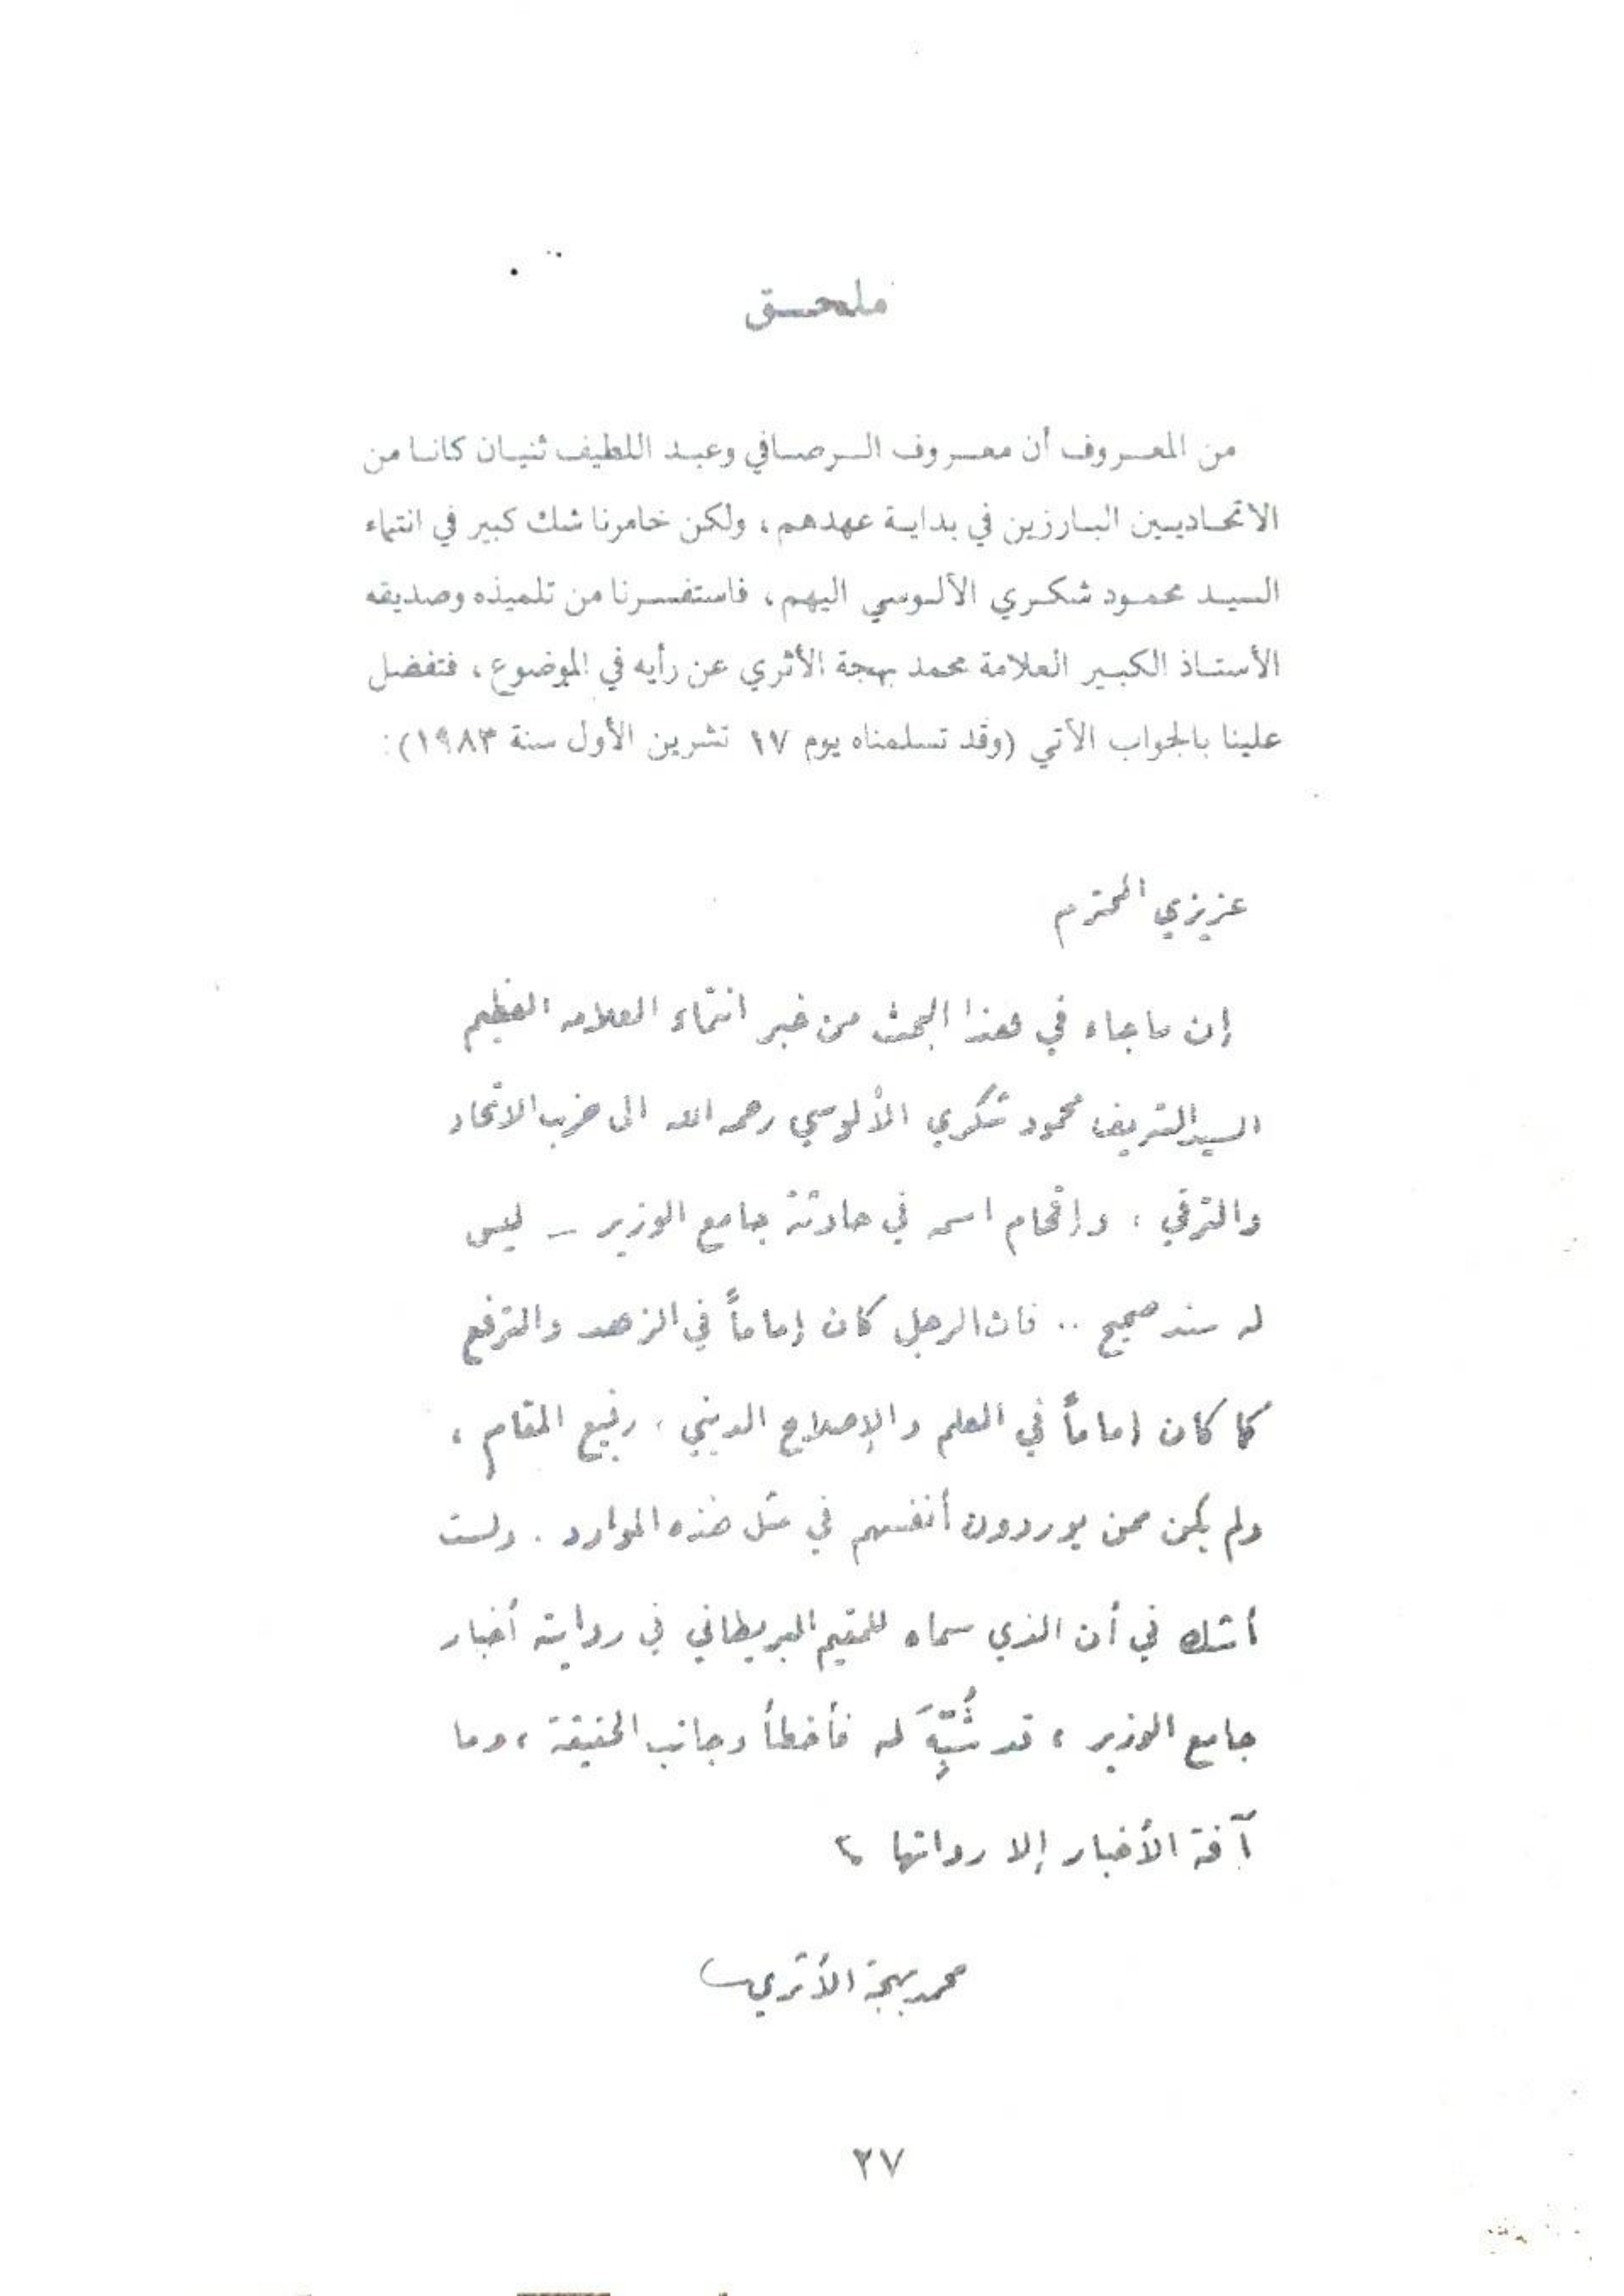 ملحق
من المعروف أن معروف الرصافي وعبد اللطيف ثنيان كانا من
الاتحاديين البارزين في بداية عهدهم، ولكن خامرنا شك كبير في انتماء
السيد محمود شكري الألوسي اليهم، فاستفسرنا من تلميذه وصديقه
الأستاذ الكبير العلامة محمد بهجة الأثري عن رأيه في الموضوع، فتفضل
علينا بالجواب الآتي (وقد تسلمناه يوم ١٧ تشرين الأول سنة ١٩٨٣):
عزيزي المحترم
إن ما جاء في هذا البحث من خبر انتماء العلامة العظيم
السيد الشريف محمود شكري الألوسي رحمه الله الى حزب الاتحاد
والترقي، وإقحام اسمه في حادثة جامع الوزير – ليس
له سند صحيح .. فان الرجل كان إماماً في الزهد والترفع
كما كان إماماً في العلم والإصلاح الديني، رفيع المقام،
ولم يكن ممن يوردون أنفسهم في مثل هذه الموارد. ولست
أشك في أن الذي سماه للمقيم البريطاني في رواية أخبار
جامع الوزير، قد شُبِّهَ له فأخطأ وجانب الحقيقة، وما
آفة الأخبار إلا رواتها
محمد بهجة الأثري
٢٧